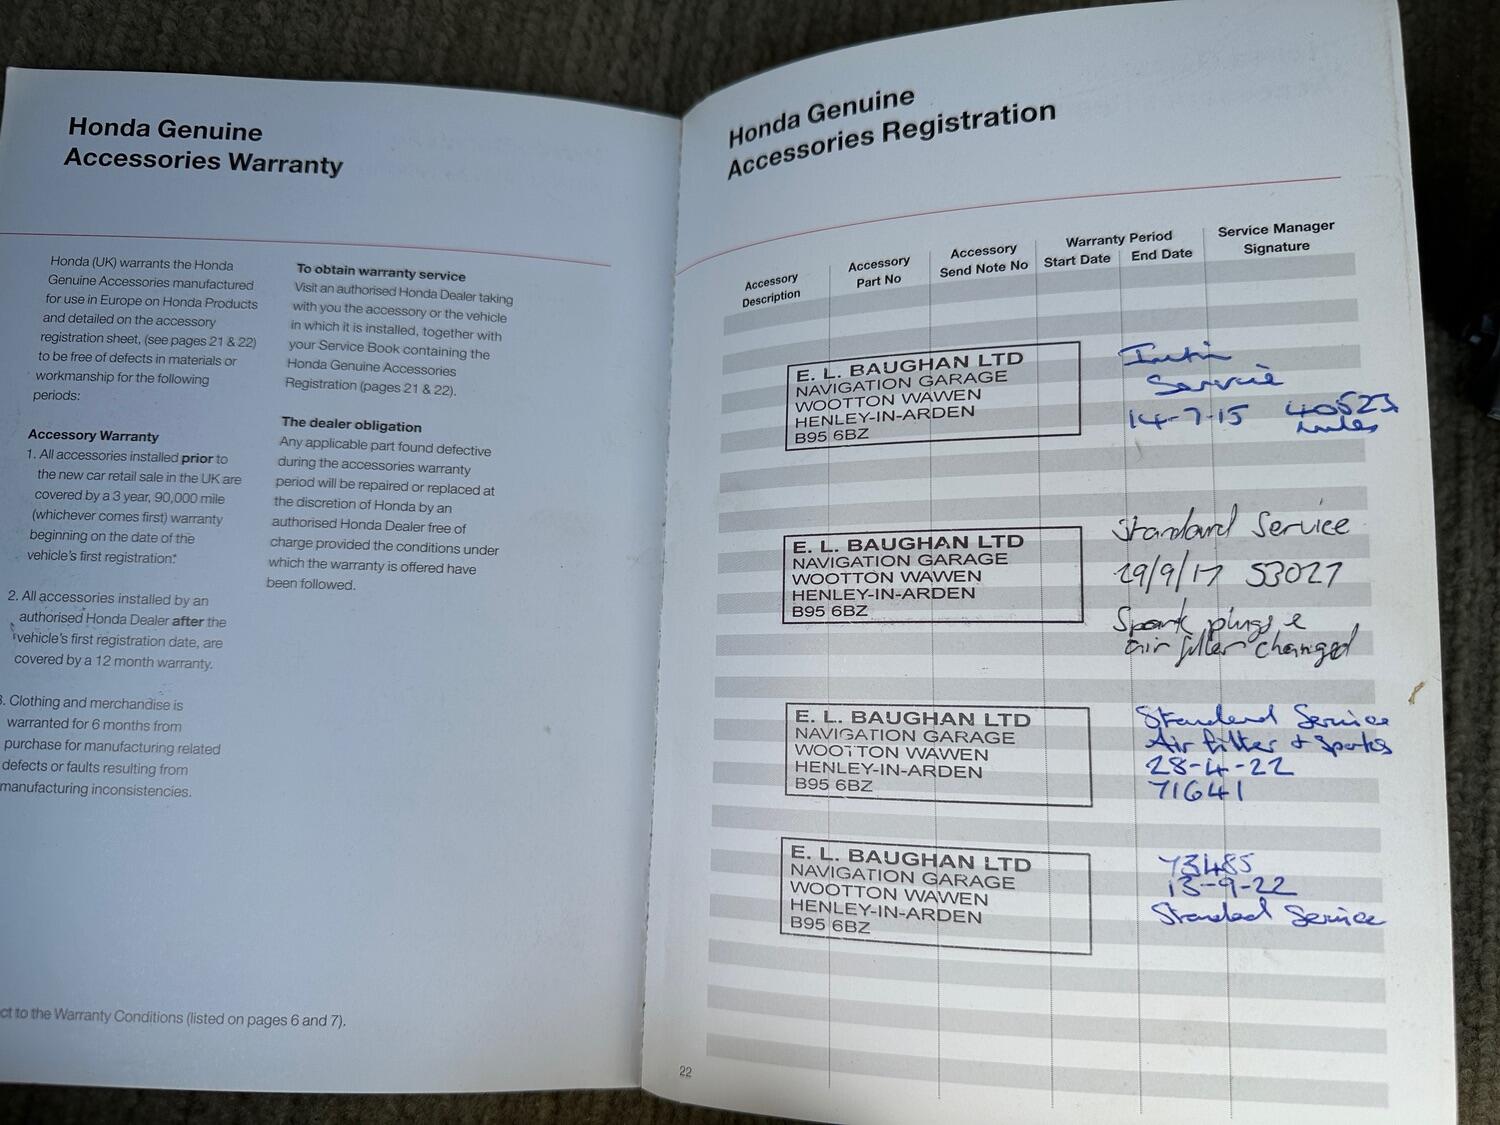 Honda Genuine
Accessories Warranty
Honda (UK) warrants the Honda
Genuine Accessories manufactured
for use in Europe on Honda Products
and detailed on the accessory
registration sheet, (see pages 21 & 22)
to be free of defects in materials or
workmanship for the following
periods:
Accessory Warranty
1. All accessories installed prior to
the new car retail sale in the UK are
covered by a 3 year, 90,000 mile
(whichever comes first) warranty
beginning on the date of the
vehicle's first registration.*
2. All accessories installed by an
authorised Honda Dealer after the
vehicle's first registration date, are
covered by a 12 month warranty.
3. Clothing and merchandise is
warranted for 6 months from
purchase for manufacturing related
defects or faults resulting from
manufacturing inconsistencies.
To obtain warranty service
Visit an authorised Honda Dealer taking
with you the accessory or the vehicle
in which it is installed, together with
your Service Book containing the
Honda Genuine Accessories
Registration (pages 21 & 22).
The dealer obligation
Any applicable part found defective
during the accessories warranty
period will be repaired or replaced at
the discretion of Honda by an
authorised Honda Dealer free of
charge provided the conditions under
which the warranty is offered have
been followed.
ct to the Warranty Conditions (listed on pages 6 and 7).
Honda Genuine
Accessories Registration
Accessory
Description
Accessory
Part No
Accessory
Send Note No
Warranty Period
Start Date End Date
Service Manager
Signature
E. L. BAUGHAN LTD
NAVIGATION GARAGE
WOOTTON WAWEN
HENLEY-IN-ARDEN
B95 6BZ
Service
14-7-15 40523
miles
E. L. BAUGHAN LTD
NAVIGATION GARAGE
WOOTTON WAWEN
HENLEY-IN-ARDEN
B95 6BZ
Standard Service
29/9/17 53027
Spark plugs &
air filter changed
E. L. BAUGHAN LTD
NAVIGATION GARAGE
WOOTTON WAWEN
HENLEY-IN-ARDEN
B95 6BZ
Standard Service
Air filter + sparks
28-4-22
71641
E. L. BAUGHAN LTD
NAVIGATION GARAGE
WOOTTON WAWEN
HENLEY-IN-ARDEN
B95 6BZ
73485
13-9-22
Standard Service
22